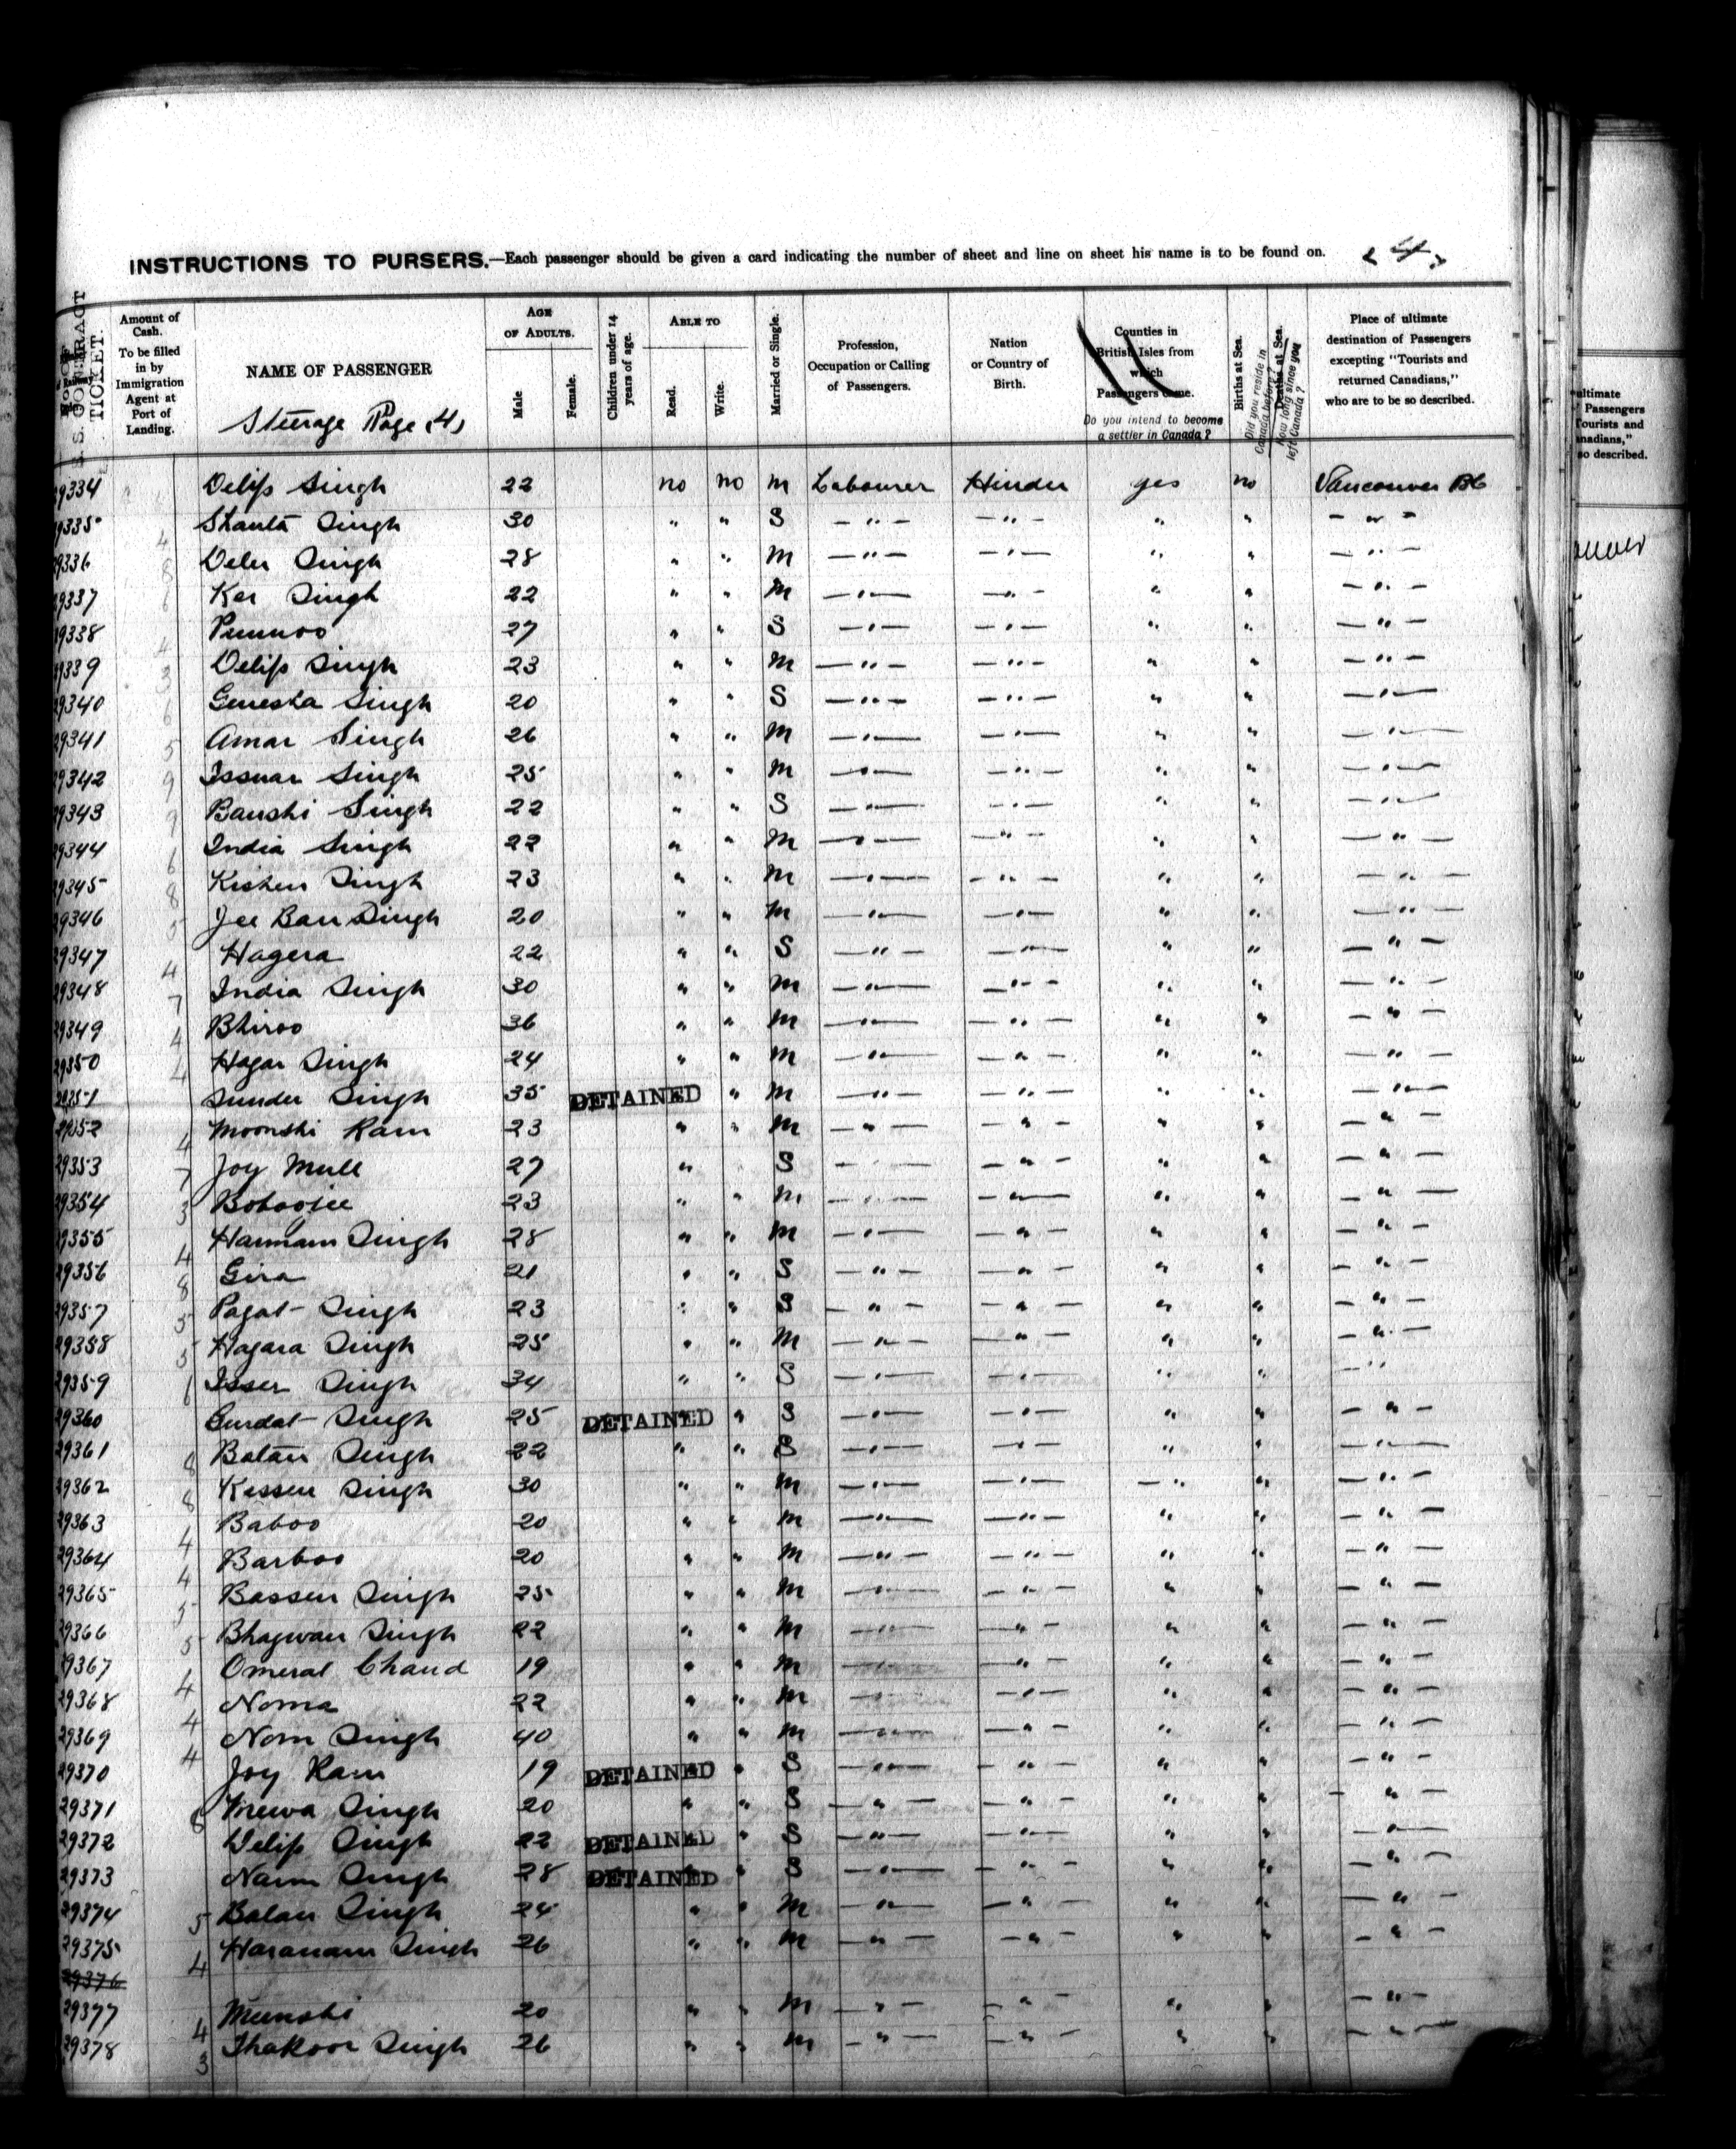 INSTRUCTIONS TO PURSERS.—Each passenger should be given a card indicating the number of sheet and line on sheet his name is to be found on. (4)
S. S. CONTRACT TICKET.
Amount of Cash. To be filled in by Immigration Agent at Port of Landing.
NAME OF PASSENGER
Steerage Page (4)
AGE OF ADULTS.
Male
Female.
Children under 14 years of age.
ABLE TO
Read.
Write.
Married or Single.
Profession, Occupation or Calling of Passengers.
Nation or Country of Birth.
Counties in British Isles from which Passengers Came.
Do you intend to become a settler in Canada?
Births at Sea.
Deaths at Sea.
Did you reside in Canada before?
How long since you left Canada?
Place of ultimate destination of Passengers excepting "Tourists and returned Canadians," who are to be so described.
29334 Delip Singh 22 no no m Labourer Hindu yes no Vancouver BC
29335 4 Shanta Singh 30 " " S -"- -"- " " -"-
29336 8 Singh 28 " " m -"- -"- " " -"-
29337 6 Ker Singh 22 " " m -"- -"- " " -"-
29338 4 Punnoo 27 " " S -"- -"- " " -"-
29339 3 Delip Singh 23 " " m -"- -"- " " -"-
29340 6 Genesha Singh 20 " " S -"- -"- " " -"-
29341 5 Amar Singh 26 " " m -"- -"- " " -"-
29342 9 Issuar Singh 25 " " m -"- -"- " " -"-
29343 9 Banshi Singh 22 " " S -"- -"- " " -"-
29344 6 India Singh 22 " " m -"- -"- " " -"-
29345 8 Kishen Singh 23 " " m -"- -"- " " -"-
29346 5 Jee Ban Singh 20 " " m -"- -"- " " -"-
29347 4 Hagera 22 " " S -"- -"- " " -"-
29348 7 India Singh 30 " " m -"- -"- " " -"-
29349 4 Bhiroo 36 " " m -"- -"- " " -"-
29350 4 Hagar Singh 24 " " m -"- -"- " " -"-
29351 Sunder Singh 35 DETAINED " m -"- -"- " " -"-
29352 4 Moonshi Ram 23 " " m -"- -"- " " -"-
29353 7 Joy Mull 27 " S -"- -"- " " -"-
29354 3 Boboojee 23 " " m -"- -"- " " -"-
29355 4 Harnam Singh 28 " " m -"- -"- " " -"-
29356 8 Gira 21 " " S -"- -"- " " -"-
29357 5 Pagat Singh 23 " " S -"- -"- " " -"-
29358 5 Hagara Singh 25 " " m -"- -"- " " -"-
29359 6 Isser Singh 34 " " S -"- -"- " " -"-
29360 Gurdat Singh 25 DETAINED " S -"- -"- " " -"-
29361 8 Batan Singh 22 " " S -"- -"- " " -"-
29362 8 Kissen Singh 30 " " m -"- -"- -" " -"-
29363 4 Baboo 20 " " m -"- -"- " " -"-
29364 4 Barboo 20 " " m -"- -"- " " -"-
29365 5 Bassen Singh 25 " " m -"- -"- " " -"-
29366 5 Bhagwan Singh 22 " " m -"- -"- " " -"-
29367 4 Omerat Chand 19 " " m -"- -"- " " -"-
29368 4 Noma 22 " " m -"- -"- " " -"-
29369 4 Nom Singh 40 " " m -"- -"- " " -"-
29370 Joy Ram 19 DETAINED " S -"- -"- " " -"-
29371 8 Mewa Singh 20 " " S -"- -"- " " -"-
29372 Delip Singh 22 DETAINED " S -"- -"- " " -"-
29373 Narm Singh 28 DETAINED " S -"- -"- " " -"-
29374 5 Balan Singh 24 " " m -"- -"- " " -"-
29375 4 Haranam Singh 26 " " m -"- -"- " " -"-
29376
29377 4 Munshi 20 " " m -"- -"- " " -"-
29378 3 Thakoor Singh 26 " " m -"- -"- " " -"-
ultimate
Passengers
Tourists and
anadians,"
so described.